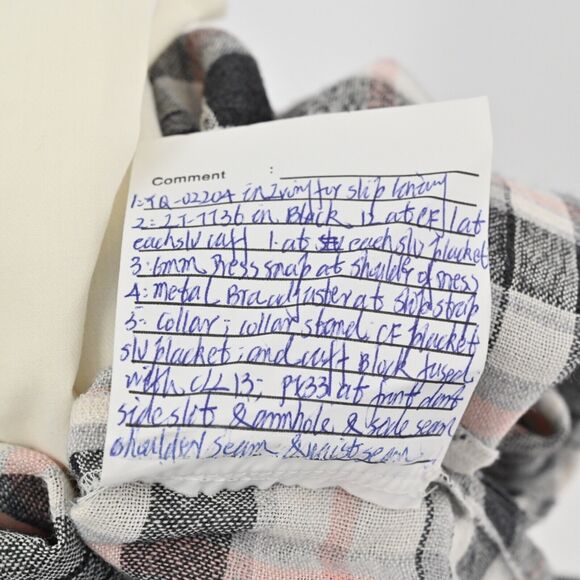 Comment :
1= JQ-02204 in Ivory for slip
2= ZJ-7736 in Black 13 at CF 1 at
each slv cuff 1 at each slv placket
3= 6mm Press snap at shoulder of
4= metal Bra adjuster at slip strap
5= collar; collar stand, CF placket
slv placket; and cuff Block fused
with CLL 13; PX33 at front
side slits & armhole & side seam
shoulder seam & waist seam.